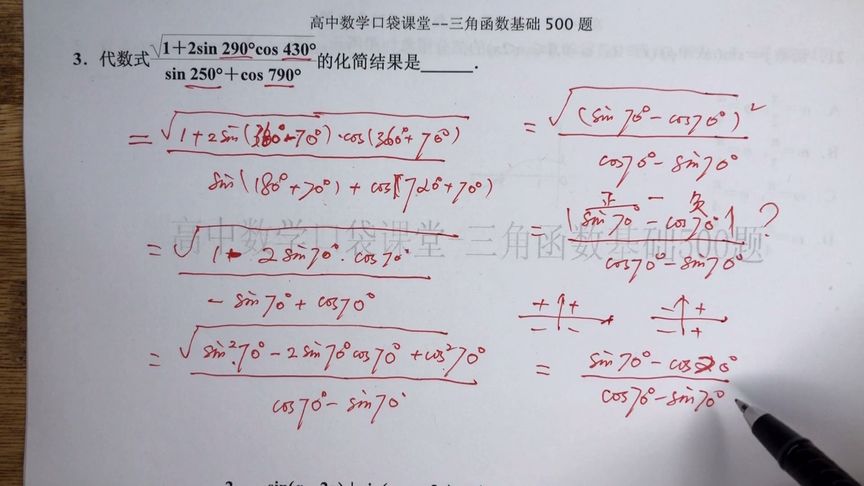 高中数学口袋课堂--三角函数基础500题
3. 代数式 √(1+2sin 290°cos 430°) / (sin 250°+cos 790°) 的化简结果是______.
= √(1+2sin(360°-70°)·cos(360°+70°)) / (sin(180°+70°)+cos(720°+70°))
= √(1-2sin70°·cos70°) / (-sin70°+cos70°)
= √(sin²70°-2sin70°cos70°+cos²70°) / (cos70°-sin70°)
= √((sin70°-cos70°)²) / (cos70°-sin70°)
正 一 负
= |sin70°-cos70°| / (cos70°-sin70°) ?
+ + - +
- - - +
= (sin70°-cos70°) / (cos70°-sin70°)
高中数学口袋课堂-三角函数基础500题